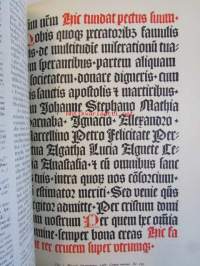 tiũ nr̃m Hic tundat pectus suum.
Nobis quoq̃ peccatoribꝫ famulis
de multitudine miserationũ tua⸗
sperantibus: partem aliquam
societatem donare digneris: cum
sanctis apostolis ⁊ martiribus
Johanne Stephano Mathia
Barnaba Ignatio Alexandro
Marcellino Petro Felicitate Per⸗
Agatha Lucia Agnete Ce⸗
Anastasia ⁊ cũ omnibus sanc⸗
intra quorũ nos consorciũ
estimator meriti Sed venie q̃s
largitor admitte. Per cristum domi
nostrum Per quem hec omnia
semper bona creas Hic fa⸗
ter crucem super utrumq̃: